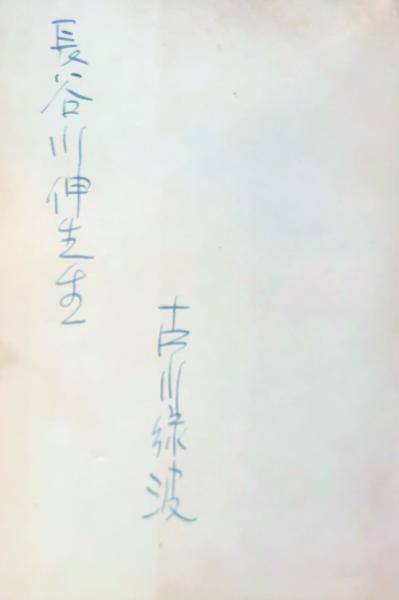 長谷川伸先生
古川緑波